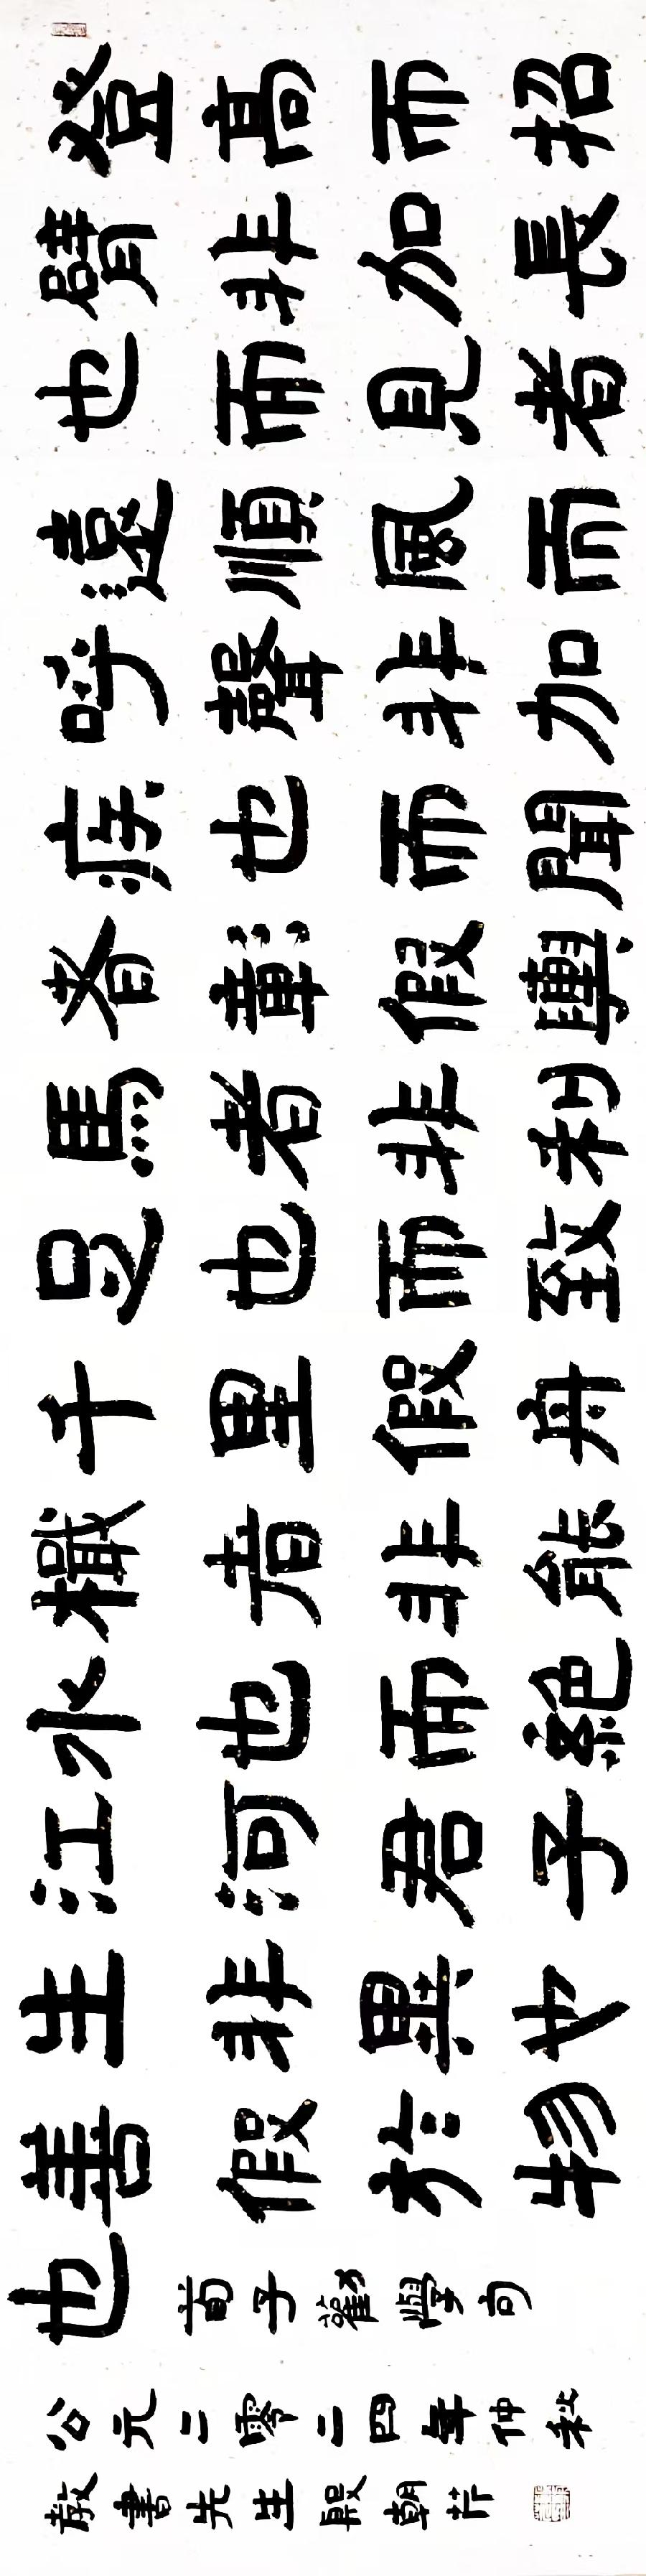 登高而招
臂非加長
也而見者
遠順風而
呼聲非加
疾也而聞
者彰假輿
馬者非利
足也而致
千里假舟
楫者非能
水也而絕
江河君子
生非異也
善假於物
也
荀子勸學句
公元二零二四年仲秋
教書先生殷朝芹